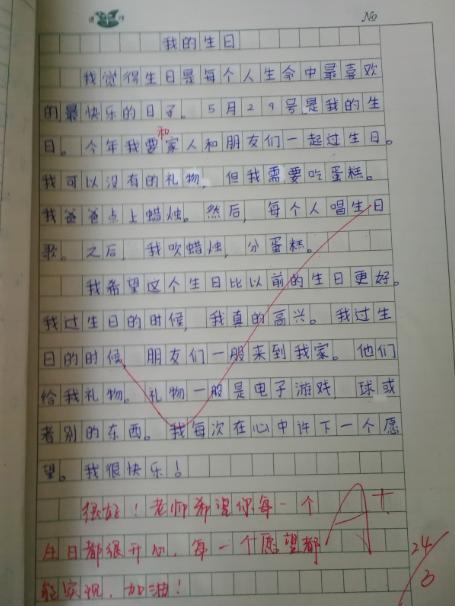 No
我的生日
我觉得生日是每个人生命中最喜欢
的最快乐的日子。5月29号是我的生
日。今年我要和家人和朋友们一起过生日。
我可以没有的礼物，但我需要吃蛋糕。
我爸爸点上蜡烛。然后，每个人唱生日
歌。之后，我吹蜡烛，分蛋糕。
我希望这个生日比以前的生日更好。
我过生日的时候，我真的高兴。我过生
日的时候，朋友们一般来到我家。他们
给我礼物。礼物一般是电子游戏 球或
者别的东西。我每次在心中许下一个愿
望。我很快乐！
很好！老师希望你每一个
生日都很开心，每一个愿望都
能实现，加油！
A+
24/3